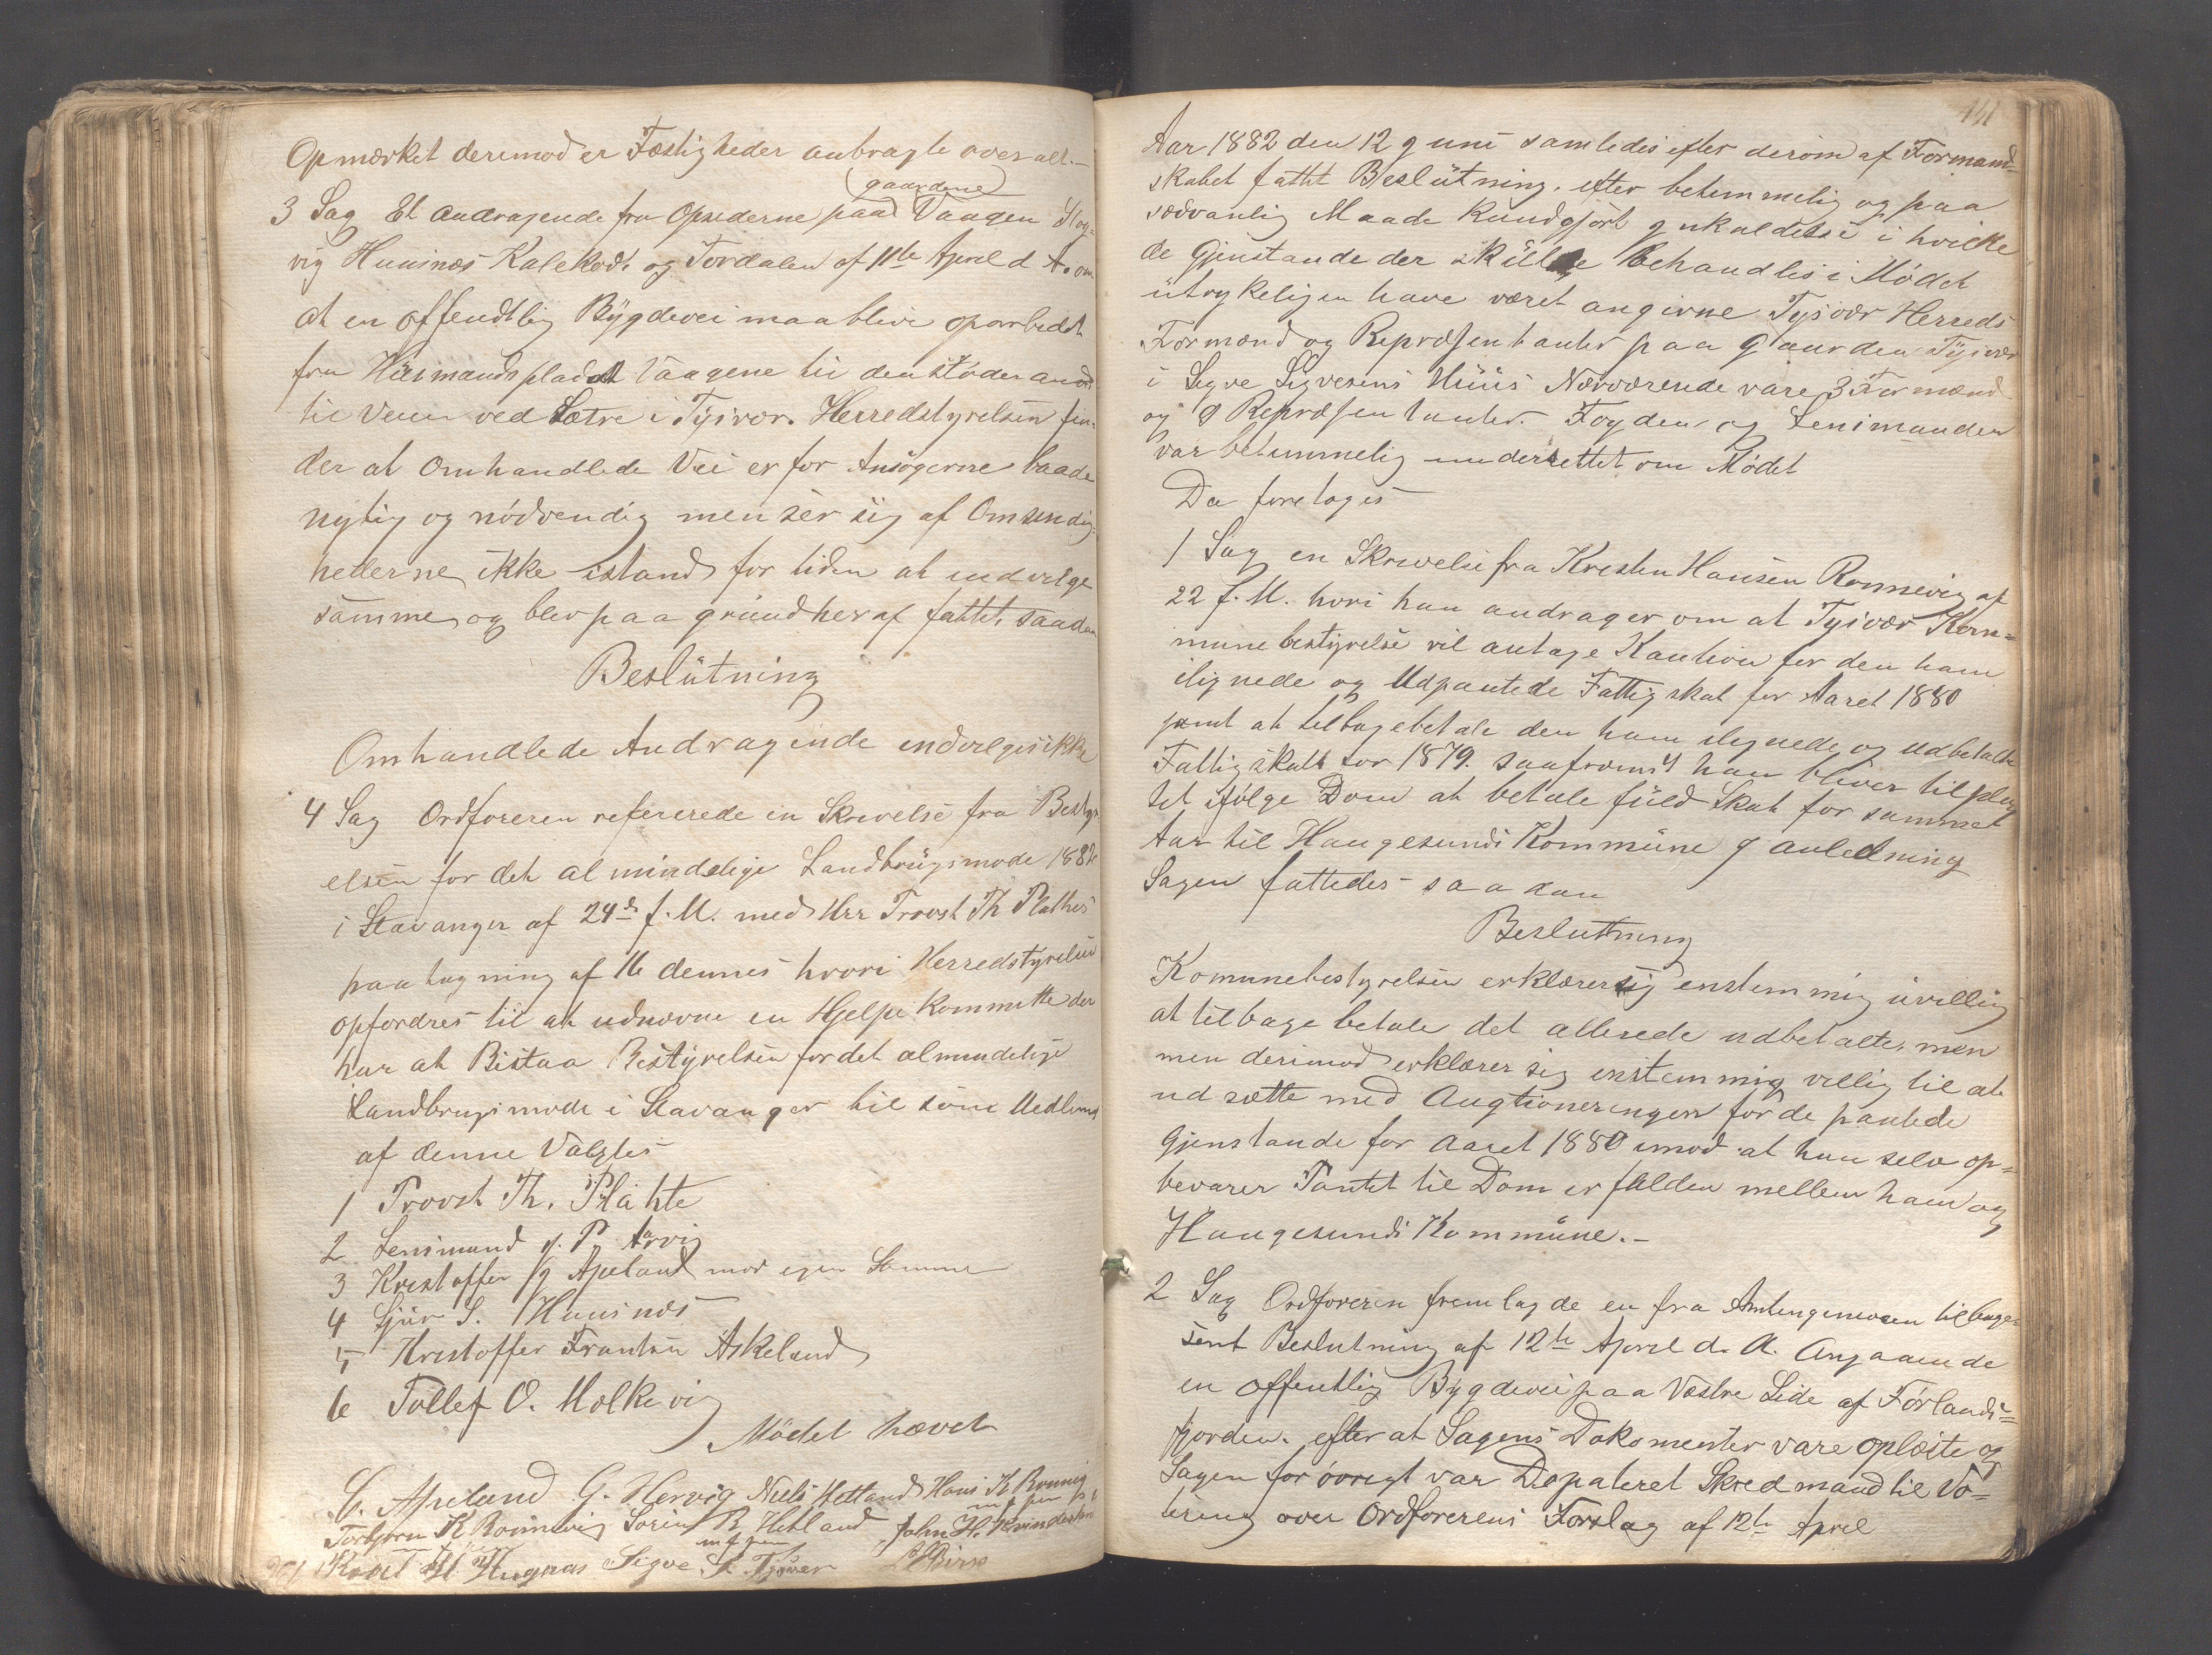 Opmærket derimod er Fæstigheder anbragte over alt.—
gaardene
3 Sag Et andragende fra Opsiderne paa Vaagen Slog-
vig Huusnæs Kalekod. og Tordalen af 11te April d A. om
at en offendtlig Bÿgdevei maa blive oparbedet
fra Hüsmandspladset Vaagene til den støder and
til Veien ved Sætre i Tysvær. Herredstyrelsen fin-
der at Omhandlede Vei er for Ansøgerne baade
nytig og nødvendig men ser sig af Omsendig-
hederne ikke istand for tiden at indvilge
samme og blev paa grund heraf fattet saadan
Beslütning
Omhandlede Andragende indvelges ikke
4 Sag Ordføreren refererede en Skrivelse fra Besty-
elsen for det almindelige Landbrügsmøde 1882
i Stavanger af 24de f. M. med Hrr Provst Th Plathes
paategning af 16 dennes hvori Herredstyrelsen
opfordres til at udnævne en Hjelpe Kommitte der
har at Bistaa Bestÿrelsen for det almindelige
Landbrugsmøde i Stavanger til som Medlem
af denne Valgtes
1 Provst Th. Plahte
2 Lensmand J. P. Aarvig
3 Kristoffer J Apeland mod egen Stemme
4 Sjur S. Huusnæs
5 Kristoffer Frantsen Askeland
6 Tollef O. Molkevig
Mødet hævet
C. Apeland G. Hervig Niels Hetland Hans K Rønnevig
m f pen
Torbjørn K Rønnevig Sørin B. Hetland John H. Kvinderhei
m f pen
Knut H Hugnas Sigve S. Tysver
141
Aar 1882 den 12 Juni samledes efter derom af Formand-
skabet fattet Beslütning. efter betemmelig og paa
sædvanlig Maade Kundgjort Inkaldelse i hvilke
de Gjenstande der skülle Behandles i Mødet
ütrykeligen have været angivne Tysvær Herreds
Formænd og Repræsentanter paa Gaarden Tÿsvær
i Sigve Sigvesens Hüüs Nærværende vare 3 Formænd
og 9 Repræsentanter. Fogden og Lensmanden
var betemmelig underrettet om Mødet
Da foretoges
1 Sag en Skrivelse fra Kristen Hansen Rønnevig af
22 f. M. hvori han andrager om at Tysvær Kom=
munebestyrelse vil antage Kaution for den ham
ilignede og Udpantede Fattigskat for Aaret 1880
samt at tilbagebetale den ham ilignede og udbetalte
Fattigskatt for 1879. saafremt han bliver tilplig
tet ifølge Dom at betale füld Skat for samme
Aar til Haugesunds Kommüne I anledning
Sagen fattedes saadan
Beslutning
Komunebestyrelsen erklærer sig enstemmig uvillig
at tilbage betale det allerede udbetalte, men
men derimod erklærer sig enstemmig villig til at
ud sætte med Augtioneringen for de pantede
Gjenstande for Aaret 1880 imod at han selv op=
bevarer Pantet til Dom er falden mellem ham og
Haugesunds Kommüne.—
2 Sag Ordføreren fremlagde en fra Amtingeniøren tilbage-
sent Beslutning af 12te April d. A. Angaaende
en offentlig Bygdevei paa Vestre Side af Førlands=
fjorden. efter at Sagens Dokomenter vare oplæste og
Sagen for øvrigt var Dispateret Skred mand til Vo=
tering over Ordførerens Forslag af 12te April